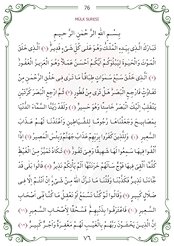 76
MÜLK SURESİ
بِسْمِ اللهِ الرَّحْمٰنِ الرَّحِيمِ
تَبَارَكَ الَّذِي بِيَدِهِ الْمُلْكُ وَهُوَ عَلَى كُلِّ شَيْءٍ قَدِيرٌ ﴿١﴾ الَّذِي خَلَقَ
الْمَوْتَ وَالْحَيَاةَ لِيَبْلُوَكُمْ أَيُّكُمْ أَحْسَنُ عَمَلًا وَهُوَ الْعَزِيزُ الْغَفُورُ
﴿٢﴾ الَّذِي خَلَقَ سَبْعَ سَمَوَاتٍ طِبَاقًا مَا تَرَى فِي خَلْقِ الرَّحْمٰنِ مِنْ
تَفَاوُتٍ فَارْجِعِ الْبَصَرَ هَلْ تَرَى مِنْ فُطُورٍ ﴿٣﴾ ثُمَّ ارْجِعِ الْبَصَرَ كَرَّتَيْنِ
يَنْقَلِبْ إِلَيْكَ الْبَصَرُ خَاسِئًا وَهُوَ حَسِيرٌ ﴿٤﴾ وَلَقَدْ زَيَّنَّا السَّمَاءَ الدُّنْيَا
بِمَصَابِيحَ وَجَعَلْنَاهَا رُجُومًا لِلشَّيَاطِينِ وَأَعْتَدْنَا لَهُمْ عَذَابَ
السَّعِيرِ ﴿٥﴾ وَلِلَّذِينَ كَفَرُوا بِرَبِّهِمْ عَذَابُ جَهَنَّمَ وَبِئْسَ الْمَصِيرُ ﴿٦﴾ إِذَا
أُلْقُوا فِيهَا سَمِعُوا لَهَا شَهِيقًا وَهِيَ تَفُورُ ﴿٧﴾ تَكَادُ تَمَيَّزُ مِنَ الْغَيْظِ
كُلَّمَا أُلْقِيَ فِيهَا فَوْجٌ سَأَلَهُمْ خَزَنَتُهَا أَلَمْ يَأْتِكُمْ نَذِيرٌ ﴿٨﴾ قَالُوا بَلَى قَدْ
جَاءَنَا نَذِيرٌ فَكَذَّبْنَا وَقُلْنَا مَا نَزَّلَ اللهُ مِنْ شَيْءٍ إِنْ أَنْتُمْ إِلَّا فِي
ضَلَالٍ كَبِيرٍ ﴿٩﴾ وَقَالُوا لَوْ كُنَّا نَسْمَعُ أَوْ نَعْقِلُ مَا كُنَّا فِي أَصْحَابِ
السَّعِيرِ ﴿١٠﴾ فَاعْتَرَفُوا بِذَنْبِهِمْ فَسُحْقًا لِأَصْحَابِ السَّعِيرِ ﴿١١﴾
إِنَّ الَّذِينَ يَخْشَوْنَ رَبَّهُمْ بِالْغَيْبِ لَهُمْ مَغْفِرَةٌ وَأَجْرٌ كَبِيرٌ ﴿١٢﴾
٧٦